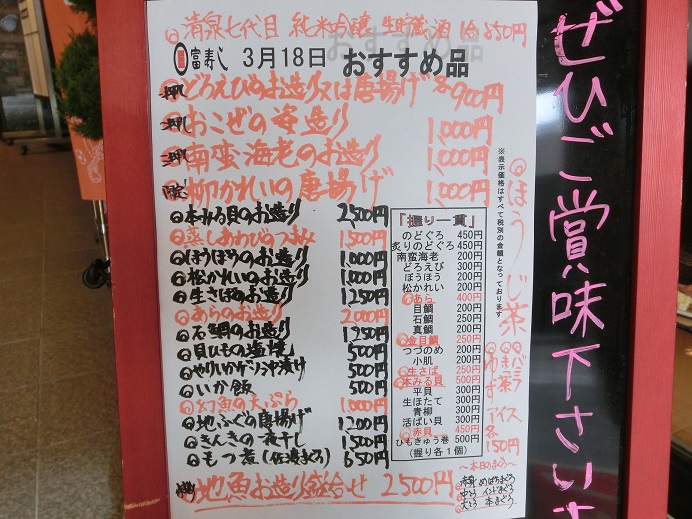 清泉七代目 純米吟醸 生貯蔵酒 850円
富寿し 3月18日 おすすめ品
どろえびのお造り又は唐揚げ 各900円
おこぜの姿造り 1,000円
南蛮海老のお造り 1,000円
柳かれいの唐揚げ 1,000円
◎本みる貝のお造り 2,500円
◎蒸しあわびのつまみ 1,500円
◎ほうぼうのお造り 1,000円
◎松かれいのお造り 1,000円
◎生さばのお造り 1,250円
◎あらのお造り 2,000円
◎石鯛のお造り 1,250円
◎貝ひもの塩焼 500円
◎やりいかゲソ沖漬け 500円
◎いか飯 500円
◎幻魚の天ぷら 1,000円
◎地ふぐの唐揚げ 1,200円
◎きんきの一夜干し 1,500円
◎もつ煮(佐渡まぐろ) 650円
地魚お造り盛合せ 2500円
「握り一貫」
のどぐろ 450円
炙りのどぐろ 450円
南蛮海老 200円
どろえび 300円
ほうぼう 200円
松かれい 200円
◎あら 400円
目鯛 200円
石鯛 250円
真鯛 200円
◎金目鯛 250円
つづのめ 200円
小肌 200円
◎生さば 250円
◎本みる貝 500円
平貝 300円
生ほたて 200円
青柳 200円
活ばい貝 200円
◎赤貝 450円
ひもきゅう巻 500円
(握り各1個)
※表示価格はすべて税別の金額となっております
◎ほうじ茶
◎バニラ
◎ゆず
アイス
各150円
~本日のまぐろ~
赤身 めばちまぐろ
中とろ インドまぐろ
大とろ 本まぐろ
ぜひご賞味下さいませ